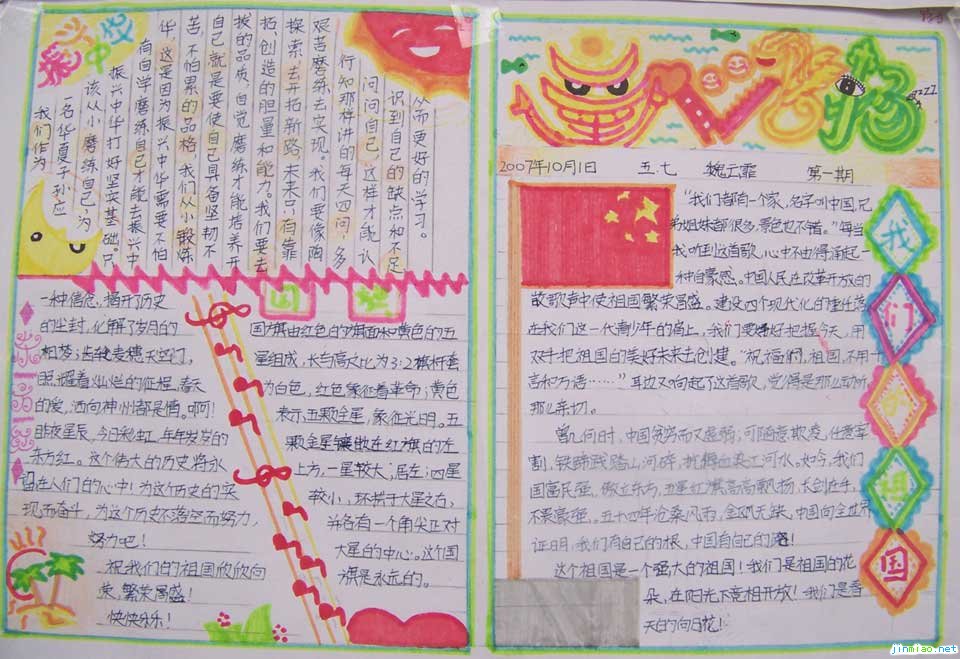 振兴中华
我们作为
名华夏子孙应
该从小磨练自己,为
振兴中华打好坚实基础。只
有自学磨练自己才能去振兴中
华,这是因为振兴中华需要不怕
苦,不怕累的品格,我们从小锻炼
自己就是要使自己具备坚韧不
拔的品质,自觉磨练才能培养开
拓、创造的胆量和能力。我们要去
探索,去开拓新路,未来只有靠
艰苦磨练去实现。我们要像陶
行知那样讲的每天四问,多
问问自己,这样才能认
识到自己的缺点和不足
从而更好的学习。
一种信念,揭开历史
的尘封,化解了岁月的
照耀着灿烂的征程,春天
的爱,洒向神州都是情。啊!
昨夜星辰,今日彩虹,年年发发的
东方红。这个伟大的历史将永
留在人们的心中!为这个历史的实
现而奋斗,为这个历史不落空而努力,
努力吧!
祝我们的祖国欣欣向
荣,繁荣富强!
快快乐乐!
国旗
国旗由红色的旗面和黄色的五
星组成,长与高之比为3:2 旗杆套
为白色,红色象征着革命;黄色
表示,五颗金星,象征光明。五
颗金星镶在红旗的左
上方,一星较大,居左;四星
较小,环拱于大星之右,
并各有一个角尖正对
大星的中心。这个国
旗是永远的。
2007年10月1日 五.七 魏云霏 第一期
我们的祖国
“我们都有一个家,名字叫中国,兄
弟姐妹都很多,景色也不错。”每当
我听到这首歌,心中不由得涌起一
种自豪感。中国人民在改革开放的
歌声中使祖国繁荣富强。建设四个现代化的重任落
在我们这一代青少年的肩上,我们要好好把握今天,用
双手把祖国的美好未来去创建。“祝福你,祖国,不用千
言和万语……”耳边又响起了这首歌,觉得是那么动听
那么亲切。
曾几何时,中国贫穷而又虚弱;可随意欺凌,任意宰
割,铁蹄践踏山河碎,
国富民强,傲立东方,五星红旗高高飘扬,长剑在手,
不畏豪强。五十四年沧桑风雨,金瓯无缺,中国向全世界
证明,我们有自己的根,中国有自己的
这个祖国是一个强大的祖国!我们是祖国的花
朵,在阳光下竞相开放!我们是春
天的向日花!
jinmiao.net